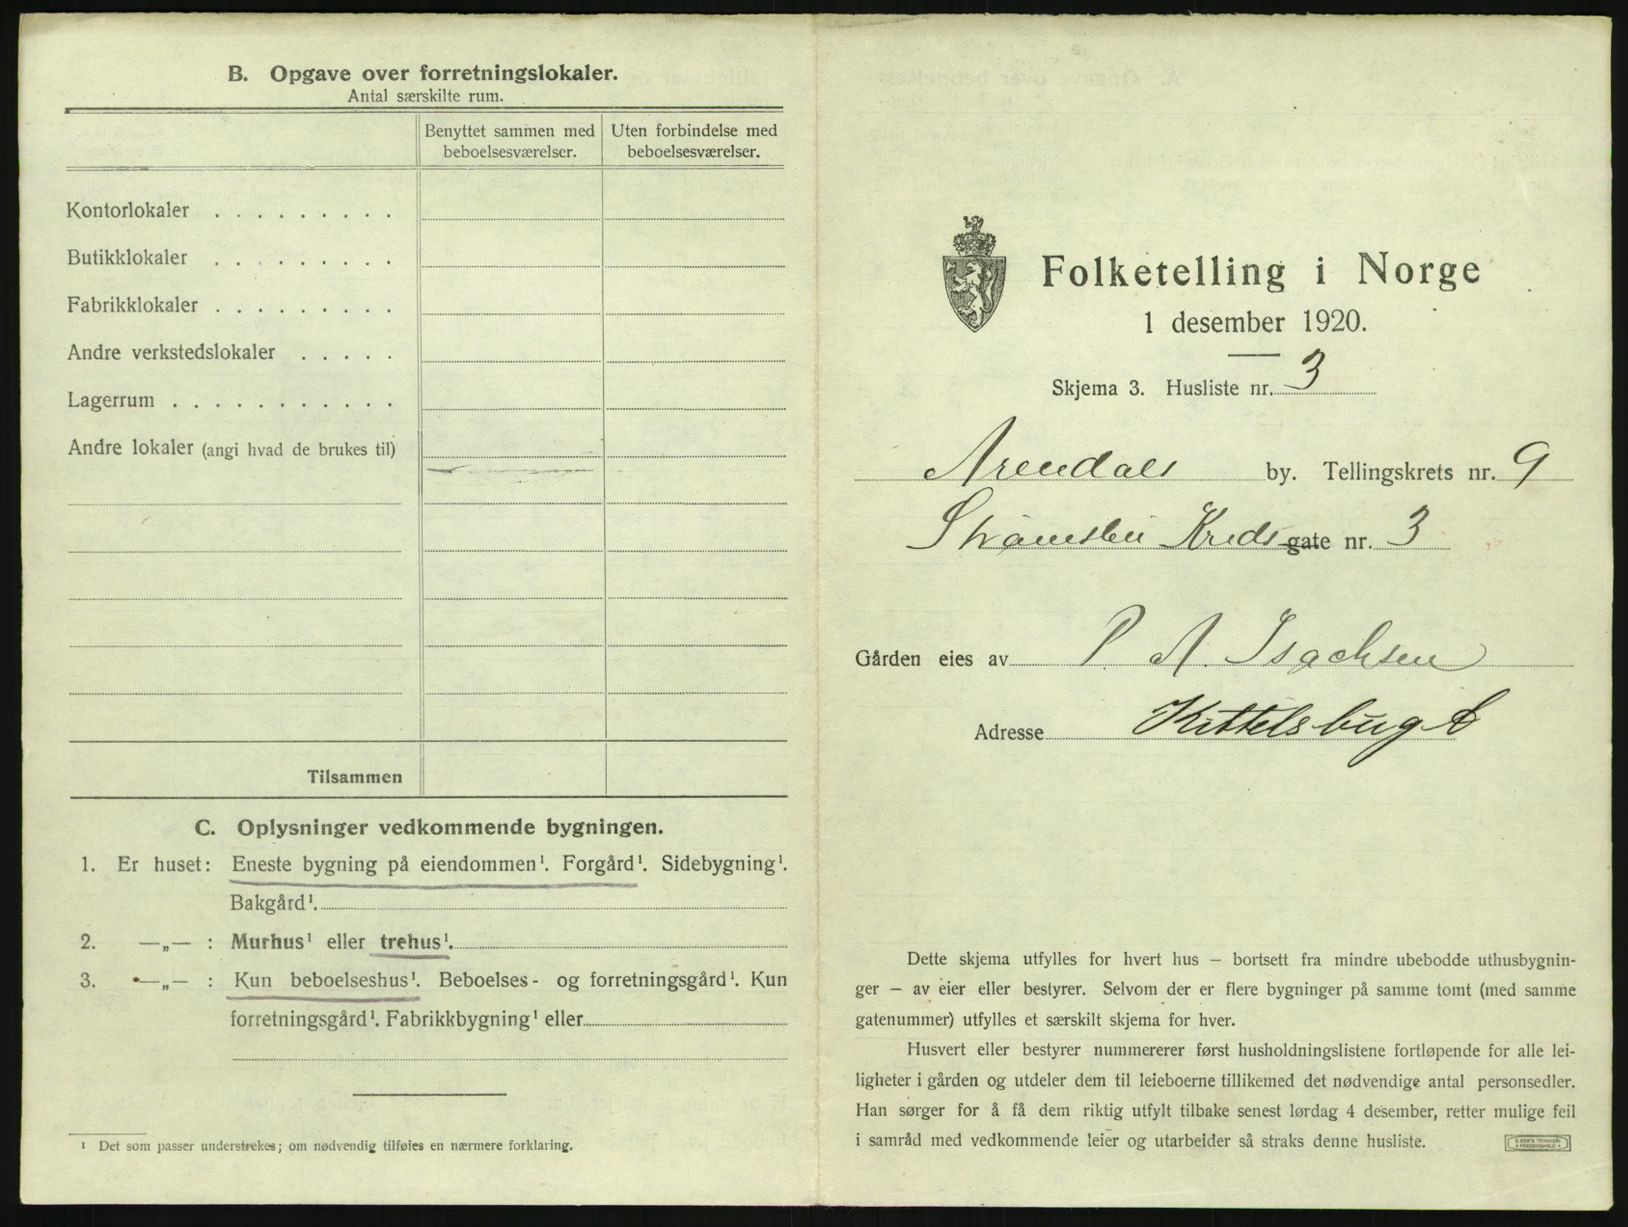 B. Opgave over forretningslokaler.
Antal særskilte rum.
Benyttet sammen med beboelsesværelser.
Uten forbindelse med beboelsesværelser.
Kontorlokaler . . . . . . . . .
Butikklokaler . . . . . . . . .
Fabrikklokaler . . . . . . . . .
Andre verkstedslokaler . . . . .
Lagerrum . . . . . . . . . . .
Andre lokaler (angi hvad de brukes til)
Tilsammen
C. Oplysninger vedkommende bygningen.
1. Er huset: Eneste bygning på eiendommen¹. Forgård¹. Sidebygning¹.
Bakgård¹.
2. —„— : Murhus¹ eller trehus¹.
3. —„— : Kun beboelseshus¹. Beboelses- og forretningsgård¹. Kun
forretningsgård¹. Fabrikkbygning¹ eller
¹ Det som passer understrekes; om nødvendig tilføies en nærmere forklaring.
Folketelling i Norge
1 desember 1920.
Skjema 3. Husliste nr. 3
Arendals by. Tellingskrets nr. 9
Strømsbu Kreds gate nr. 3
Gården eies av P. A. Isachsen
Adresse Kittelsbugt
Dette skjema utfylles for hvert hus – bortsett fra mindre ubebodde uthusbygnin-
ger – av eier eller bestyrer. Selvom der er flere bygninger på samme tomt (med samme
gatenummer) utfylles et særskilt skjema for hver.
Husvert eller bestyrer nummererer først husholdningslistene fortløpende for alle lei-
ligheter i gården og utdeler dem til leieboerne tillikemed det nødvendige antal personsedler.
Han sørger for å få dem riktig utfylt tilbake senest lørdag 4 desember, retter mulige feil
i samråd med vedkommende leier og utarbeider så straks denne husliste.